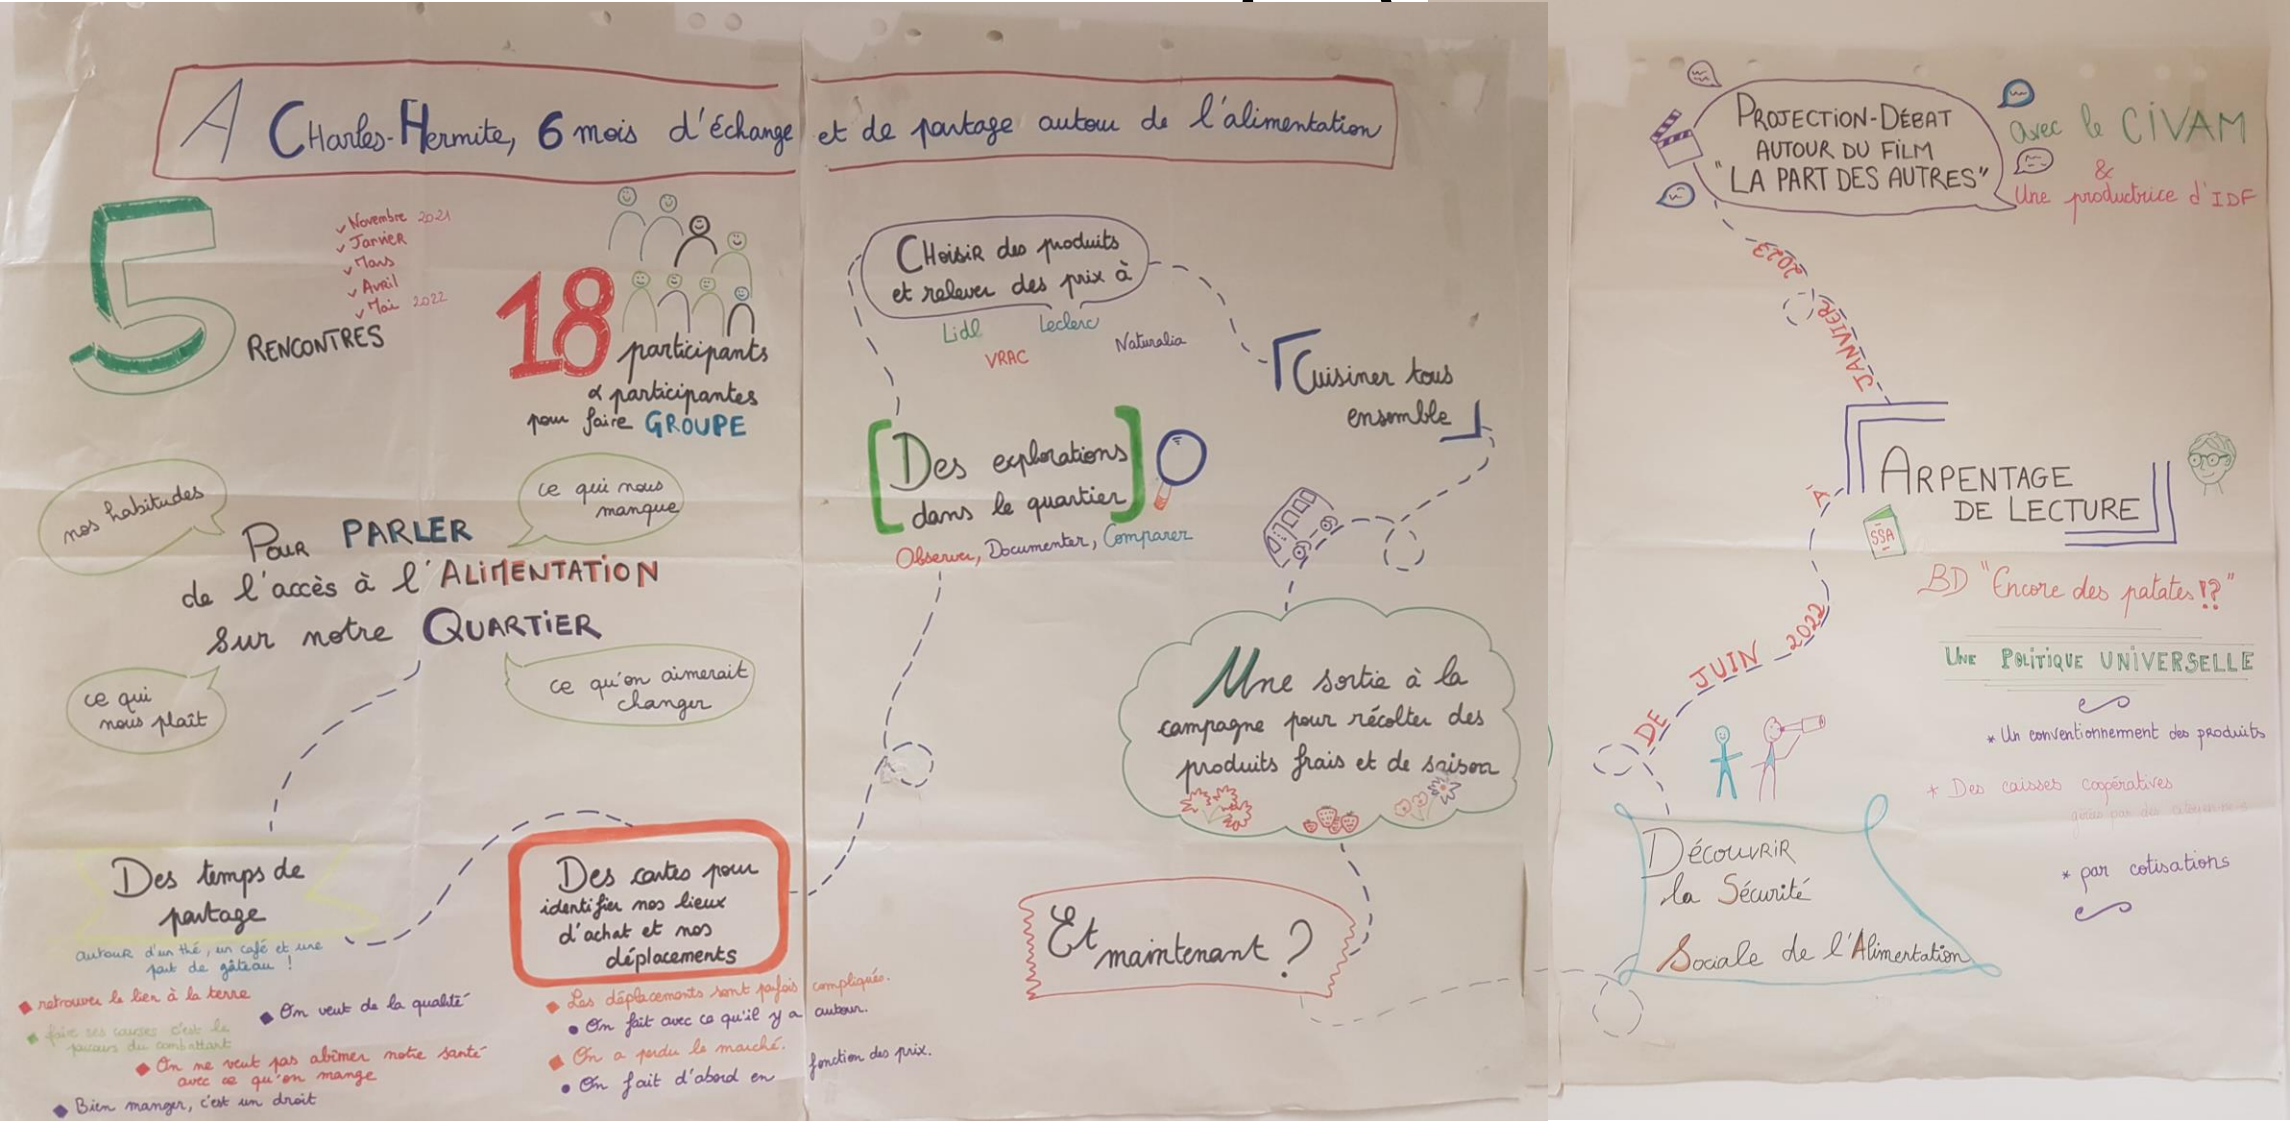 A CHarles-Hermite, 6 mois d'échange et de partage autour de l'alimentation
5
RENCONTRES
Novembre 2021
Janvier
Mars
Avril
Mai 2022
18
participants
& participantes
pour faire GROUPE
nos habitudes
ce qui nous
manque
Pour PARLER
de l'accès à l'ALIMENTATION
sur notre QUARTIER
ce qui
nous plaît
ce qu'on aimerait
changer
Des temps de
partage
autour d'un thé, un café et une
part de gâteau !
retrouver le lien à la terre
On veut de la qualité
faire ses courses c'est le
parcours du combattant
On ne veut pas abîmer notre santé
avec ce qu'on mange
Bien manger, c'est un droit
Des cartes pour
identifier nos lieux
d'achat et nos
déplacements
Les déplacements sont parfois compliqués.
On fait avec ce qu'il y a autour.
On a perdu le marché.
On fait d'abord en fonction des prix.
CHoisir des produits
et relever des prix à
Lidl
Leclerc
VRAC
Naturalia
[Des explorations
dans le quartier]
Observer, Documenter, Comparer
Cuisiner tous
ensemble
Une sortie à la
campagne pour récolter des
produits frais et de saison
Et maintenant ?
PROJECTION-DÉBAT
AUTOUR DU FILM
"LA PART DES AUTRES"
avec le CIVAM
&
Une productrice d'IDF
DE JUIN 2022
À JANVIER 2023
ARPENTAGE
DE LECTURE
SSA
BD "Encore des patates !?"
UNE POLITIQUE UNIVERSELLE
* Un conventionnement des produits
* Des caisses coopératives
gérées par des
* par cotisations
DÉCOUVRIR
la Sécurité
Sociale de l'Alimentation